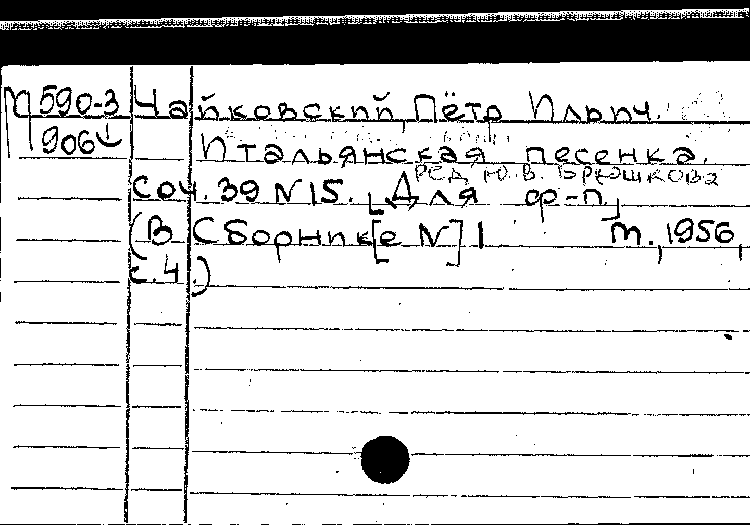 М 590-3 Чайковский, Пётр Ильич.
906
Итальянская песенка.
Ред. Ю. В. Брюшкова
Соч. 39 N 15. [Для ф-п.]
(В Сборнике [е N] 1 М., 1956,
с. 4.)